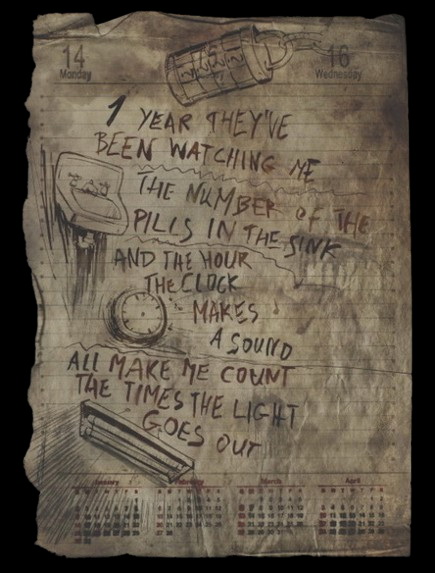 14
Monday
16
Wednesday
1 YEAR THEY'VE
BEEN WATCHING ME
THE NUMBER OF THE
PILLS IN THE SINK
AND THE HOUR
THE CLOCK
MAKES
A SOUND
ALL MAKE ME COUNT
THE TIMES THE LIGHT
GOES OUT
January February March April